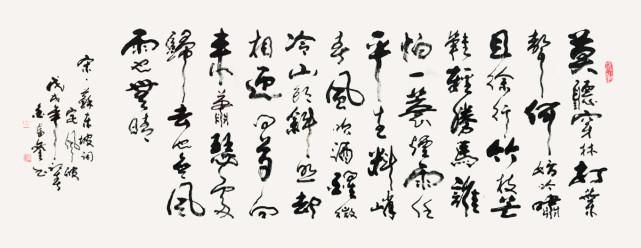 莫聽穿林打葉
聲何妨吟嘯
且徐行竹杖芒
鞋輕勝馬誰
怕一蓑煙雨任
平生料峭
春風吹酒醒微
冷山頭斜照卻
相迎回首向
來蕭瑟處
歸去也無風
雨也無晴
宋蘇東坡詞
定風波
戊戌年